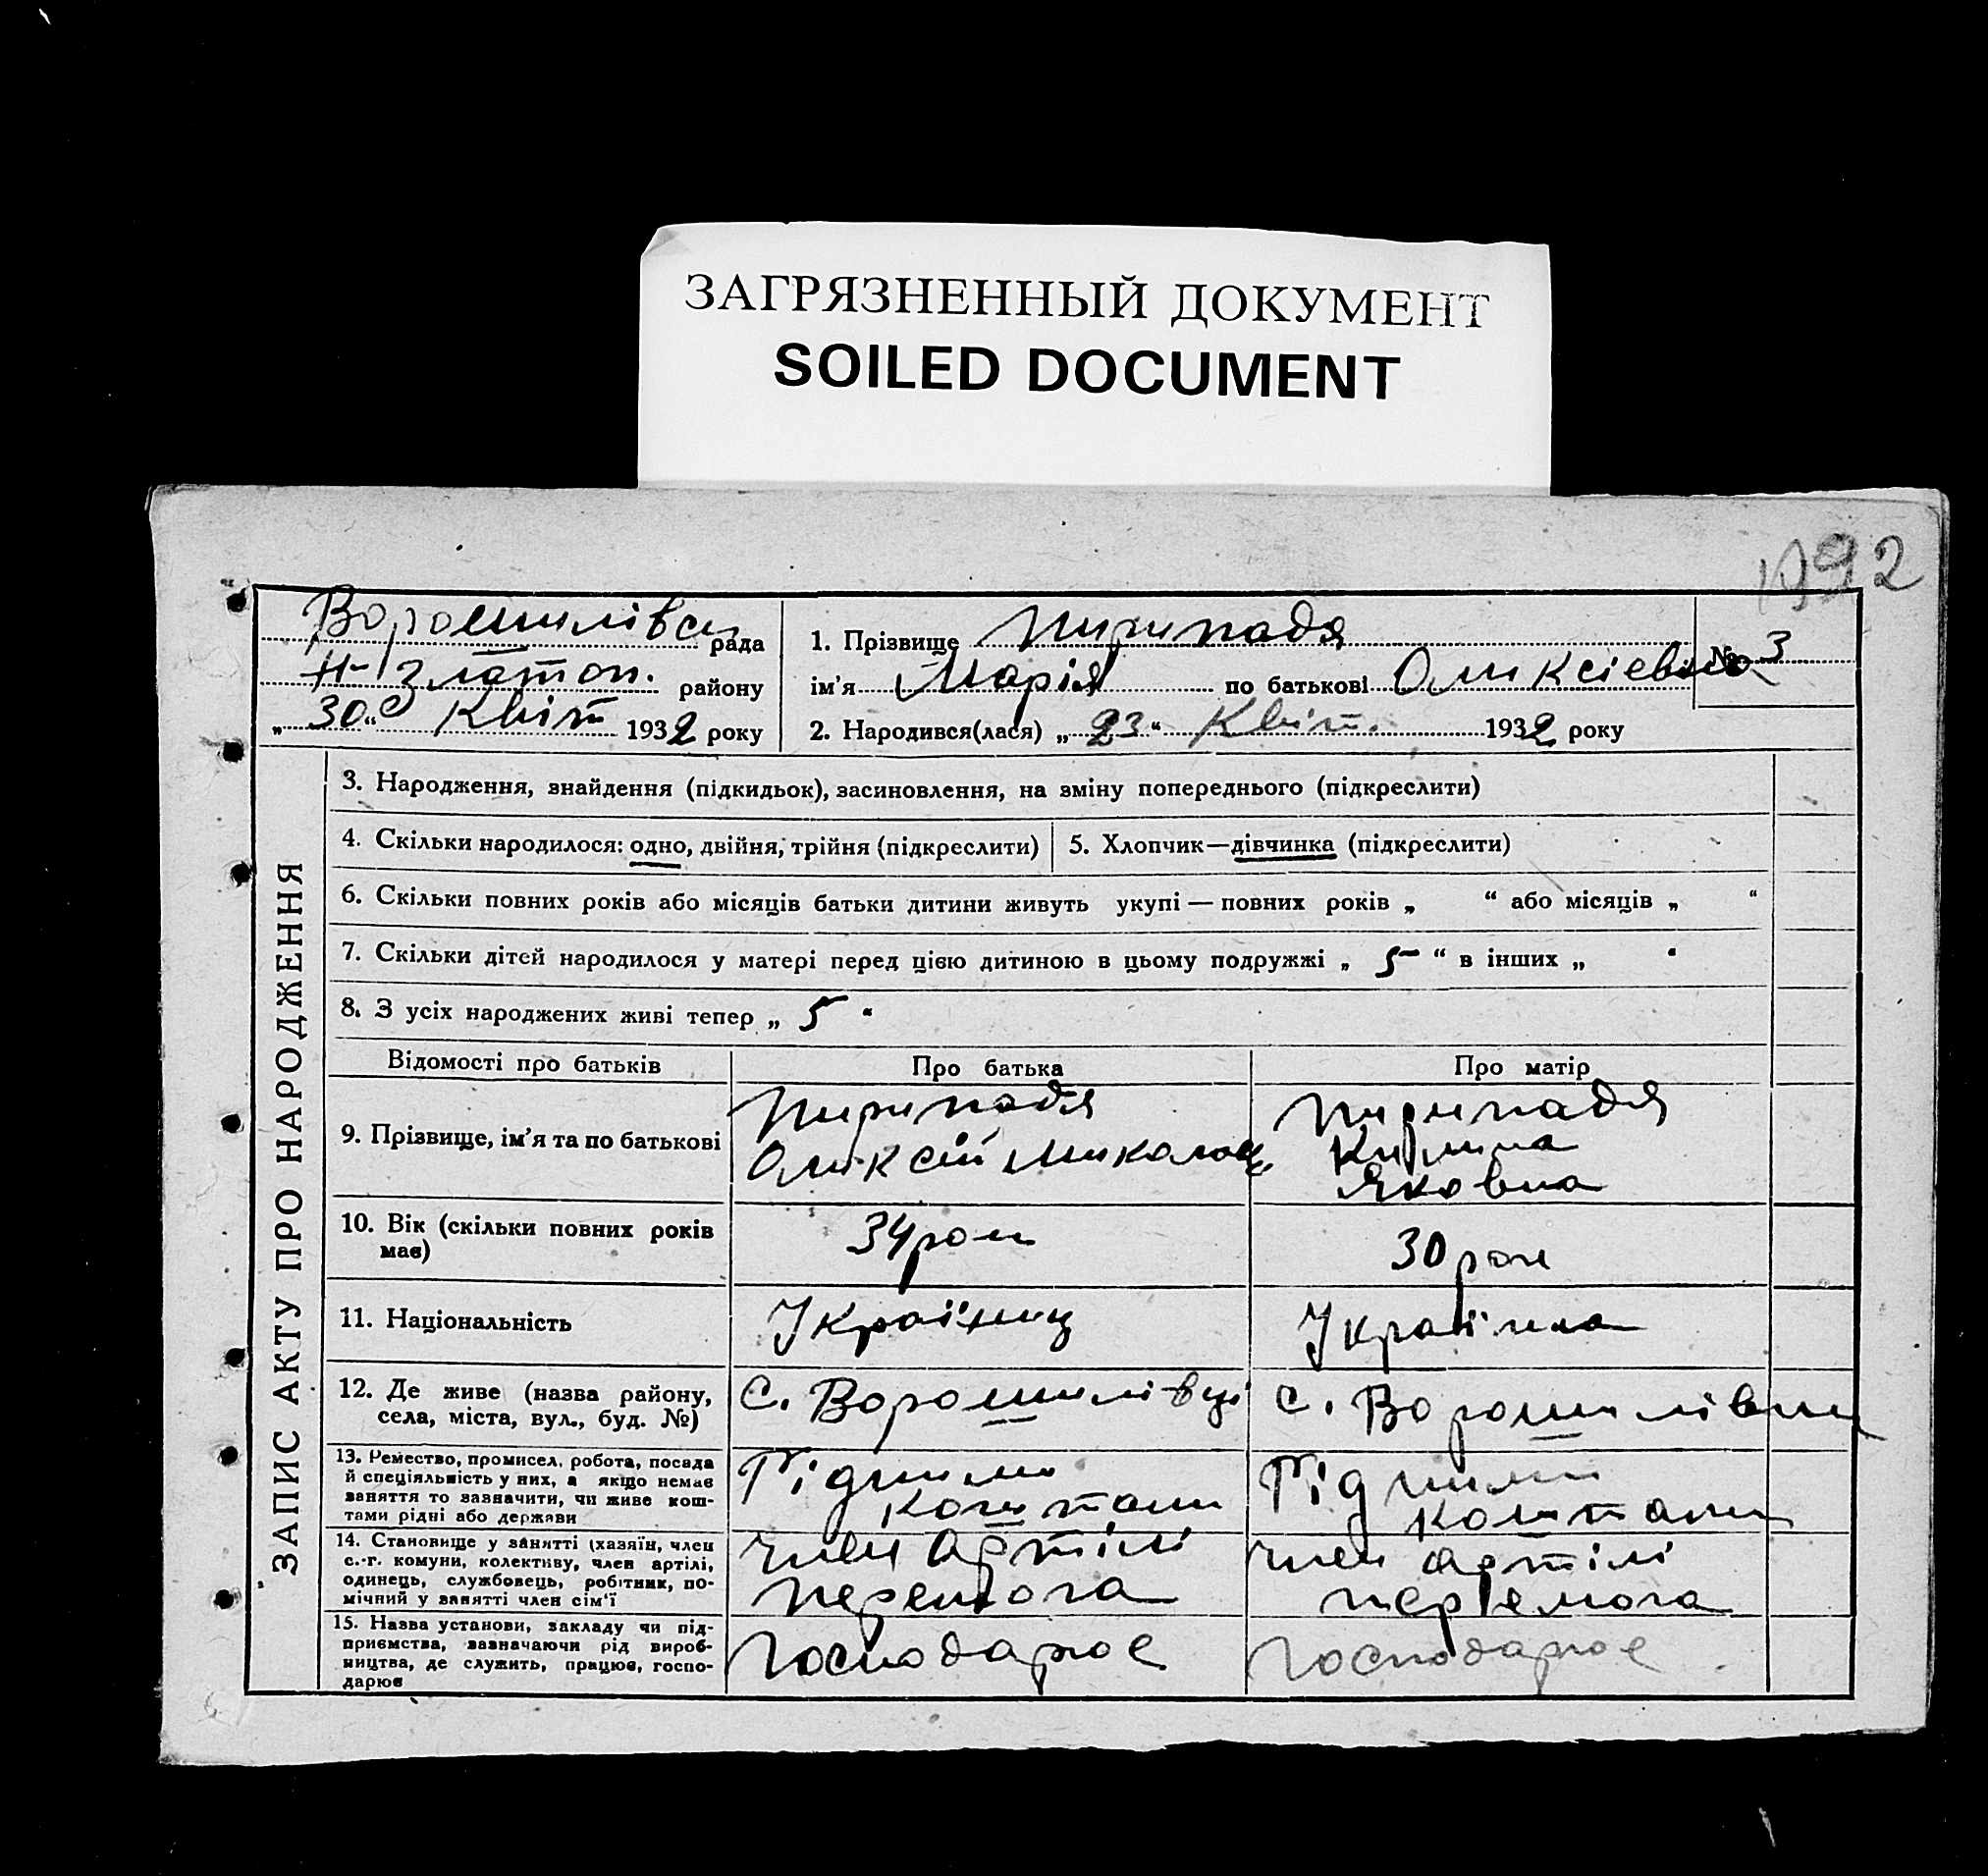 ЗАГРЯЗНЕННЫЙ ДОКУМЕНТ
SOILED DOCUMENT
1992
Ворошилівськ рада
Н-Златоп. району
„30“ Квіт 1932 року
1. Прізвище Пирипадя
ім’я Марія по батькові Оликсієвна
№ 3
2. Народився(лася) „23“ Квіт. 1932 року
ЗАПИС АКТУ ПРО НАРОДЖЕННЯ
3. Народження, знайдення (підкидьок), засиновлення, на зміну попереднього (підкреслити)
4. Скільки народилося: одно, двійня, трійня (підкреслити)
5. Хлопчик—дівчинка (підкреслити)
6. Скільки повних років або місяців батьки дитини живуть укупі — повних років „ “ або місяців „ “
7. Скільки дітей народилося у матері перед цією дитиною в цьому подружжі „ 5 “ в інших „ “
8. З усіх народжених живі тепер „ 5 “
Відомості про батьків
Про батька
Про матір
9. Прізвище, ім’я та по батькові
Пирипадя
Оликсій
Пирипадя
Килина
Яковна
10. Вік (скільки повних років
має)
34 роки
30 рок
11. Національність
Україниц
Українна
12. Де живе (назва району,
села, міста, вул., буд. №)
с. Ворошилівці
с. Ворошилівци
13. Ремество, промисел, робота, посада
й спеціяльність у них, а якщо немає
заняття то зазначити, чи живе кош-
тами рідні або держави
Рідними
коштами
Рідними
коштами
14. Становище у занятті (хазяїн, член
с.-г. комуни, колективу, член артілі,
одинець, службовець, робітник, по-
мічний у занятті член сім’ї
член артілі
перемога
член артілі
перемога
15. Назва установи, закладу чи під-
приємства, зазначаючи рід вироб-
ництва, де служить, працює, госпо-
дарює
Господарює
Господарює